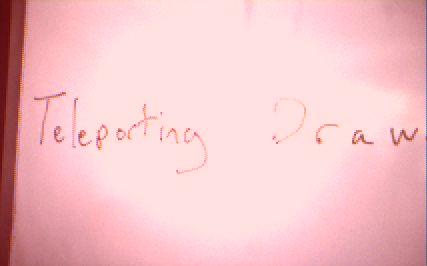 Teleporting Draw